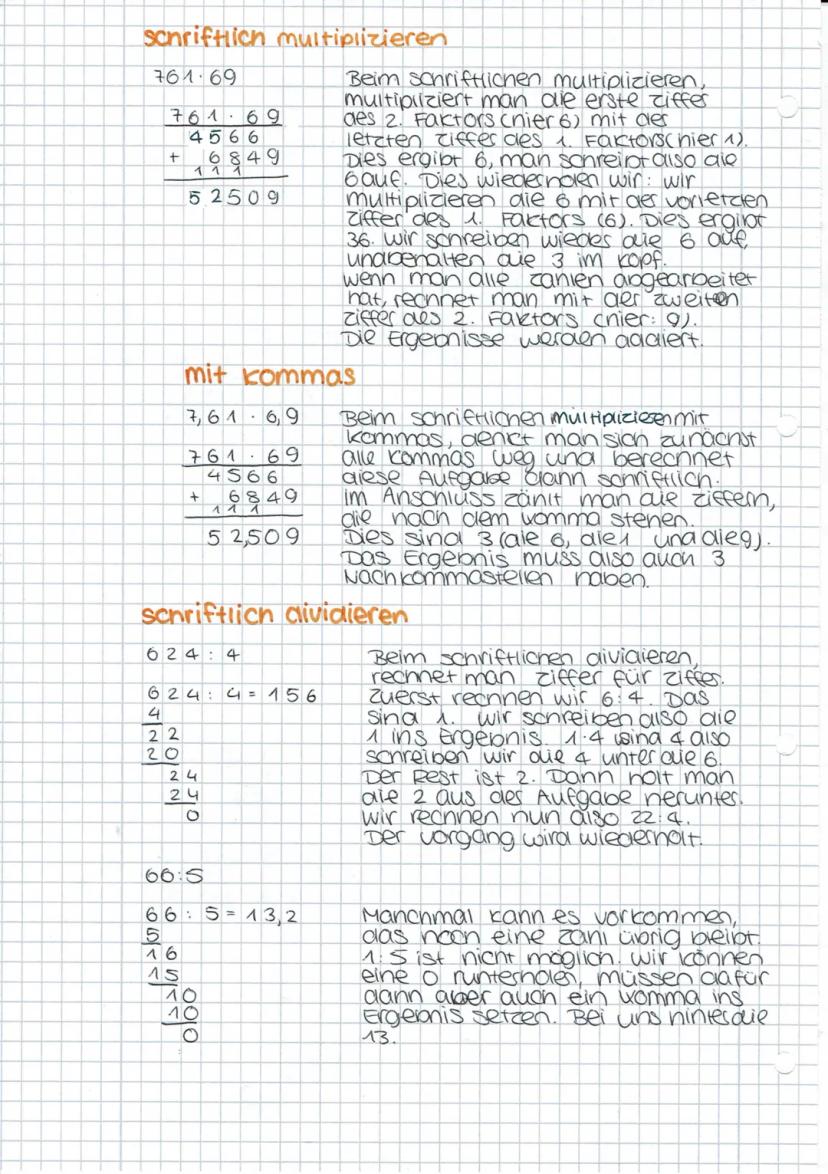 schriftlich multiplizieren
761·69
761·69
4566
+ 6849
111
52509
Beim schriftlichen multiplizieren,
multipliziert man die erste Ziffer
des 2. Faktors (hier 6) mit der
letzten Ziffer des 1. Faktors (hier 1).
Dies ergibt 6, man schreibt also die
6 auf. Dies wiederholen wir: wir
multiplizieren die 6 mit der vorletzten
Ziffer des 1. Faktors (6). Dies ergibt
36. wir schreiben wieder die 6 auf,
und behalten die 3 im Kopf.
wenn man alle zahlen abgearbeitet
hat, rechnet man mit der zweiten
Ziffer des 2. Faktors (hier: 9).
Die Ergebnisse werden addiert.
mit kommas
7,61 · 6,9
761 · 69
4566
+ 6849
111
52,509
Beim schriftlichen multiplizieren mit
kommas, denkt man sich zunächst
alle kommas weg und berechnet
diese Aufgabe dann schriftlich.
im Anschluss zählt man die ziffern,
die nach dem komma stehen.
Dies sind 3 (die 6, die 1 und die 9).
Das Ergebnis muss also auch 3
Nachkommastellen haben.
schriftlich dividieren
624 : 4
624 : 4 = 156
4
22
20
24
24
0
Beim schriftlichen dividieren,
rechnet man ziffer für ziffer.
Zuerst rechnen wir 6:4. Das
sind 1. wir schreiben also die
1 ins Ergebnis. 1·4 sind 4 also
schreiben wir die 4 unter die 6.
Der Rest ist 2. Dann holt man
die 2 aus der Aufgabe herunter.
wir rechnen nun also 22:4.
Der vorgang wird wiederholt.
66:5
66 : 5 = 13,2
5
16
15
10
10
0
Manchmal kann es vorkommen,
das noch eine zahl übrig bleibt.
1:5 ist nicht möglich. wir können
eine 0 runterholen, müssen dafür
dann aber auch ein komma ins
Ergebnis setzen. Bei uns hinter die
13.